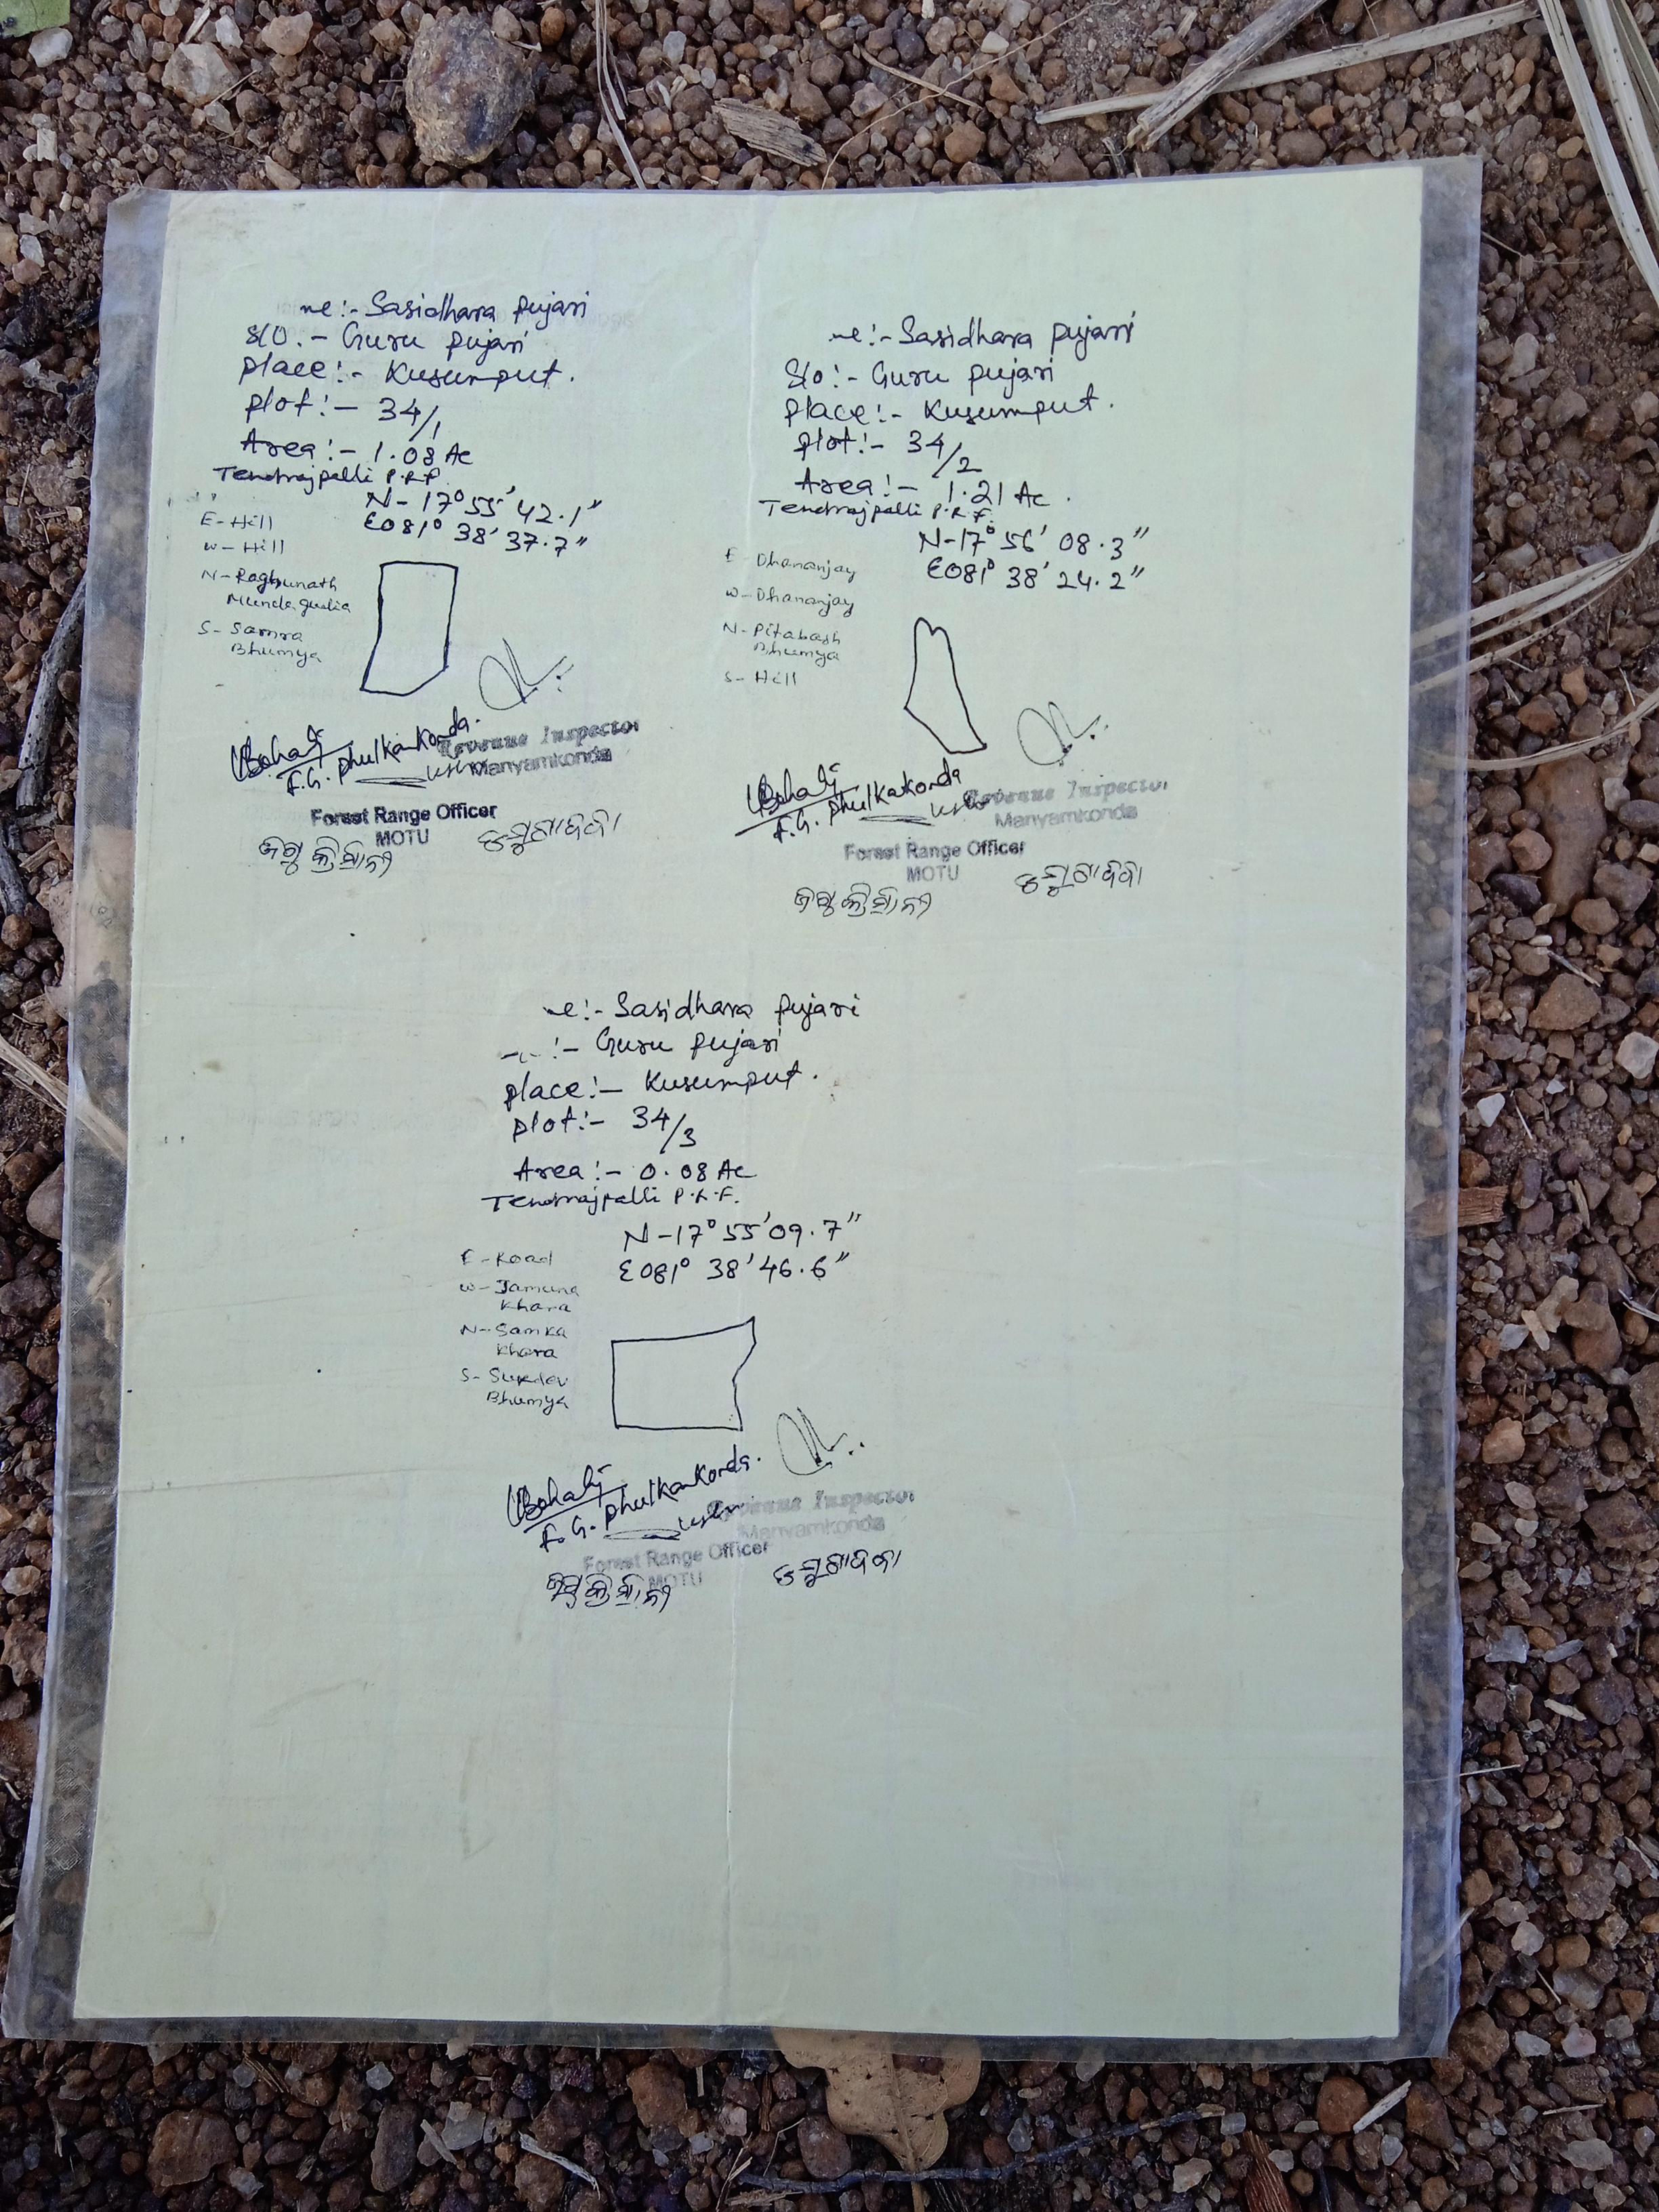 me:- Sasidhara pujari
S/O.- Guru pujari
place:- Kusumput.
plot:- 34/1
Area:- 1.08 Ac
P.R.F.
N- 17° 55' 42.1"
E081° 38' 37.7"
E- Hill
W- Hill
N- Raghunath
S- Samra
Bhumya
F.G. Phulkankonda.
Revenue Inspector
Manyamkonda
Forest Range Officer
MOTU
me:- Sasidhara pujari
S/o:- Guru pujari
place:- Kusumput.
plot:- 34/2
Area:- 1.21 Ac.
P.R.F.
N-17° 56' 08.3"
E081° 38' 24.2"
E- Dhananjay
W- Dhananjay
N- Pitabash
Bhumya
S- Hill
F.G. Phulkankonda
Revenue Inspector
Manyamkonda
Forest Range Officer
MOTU
e:- Sasidhara pujari
:- Guru pujari
place:- Kusumput.
plot:- 34/3
Area:- 0.08 Ac
P.R.F.
N-17° 55' 09.7"
E081° 38' 46.6"
E- Road
W- Jamuna
Khara
N- Samka
Khara
S- Sukdev
Bhumya
F.G. Phulkankonda.
Revenue Inspector
Manyamkonda
Forest Range Officer
MOTU